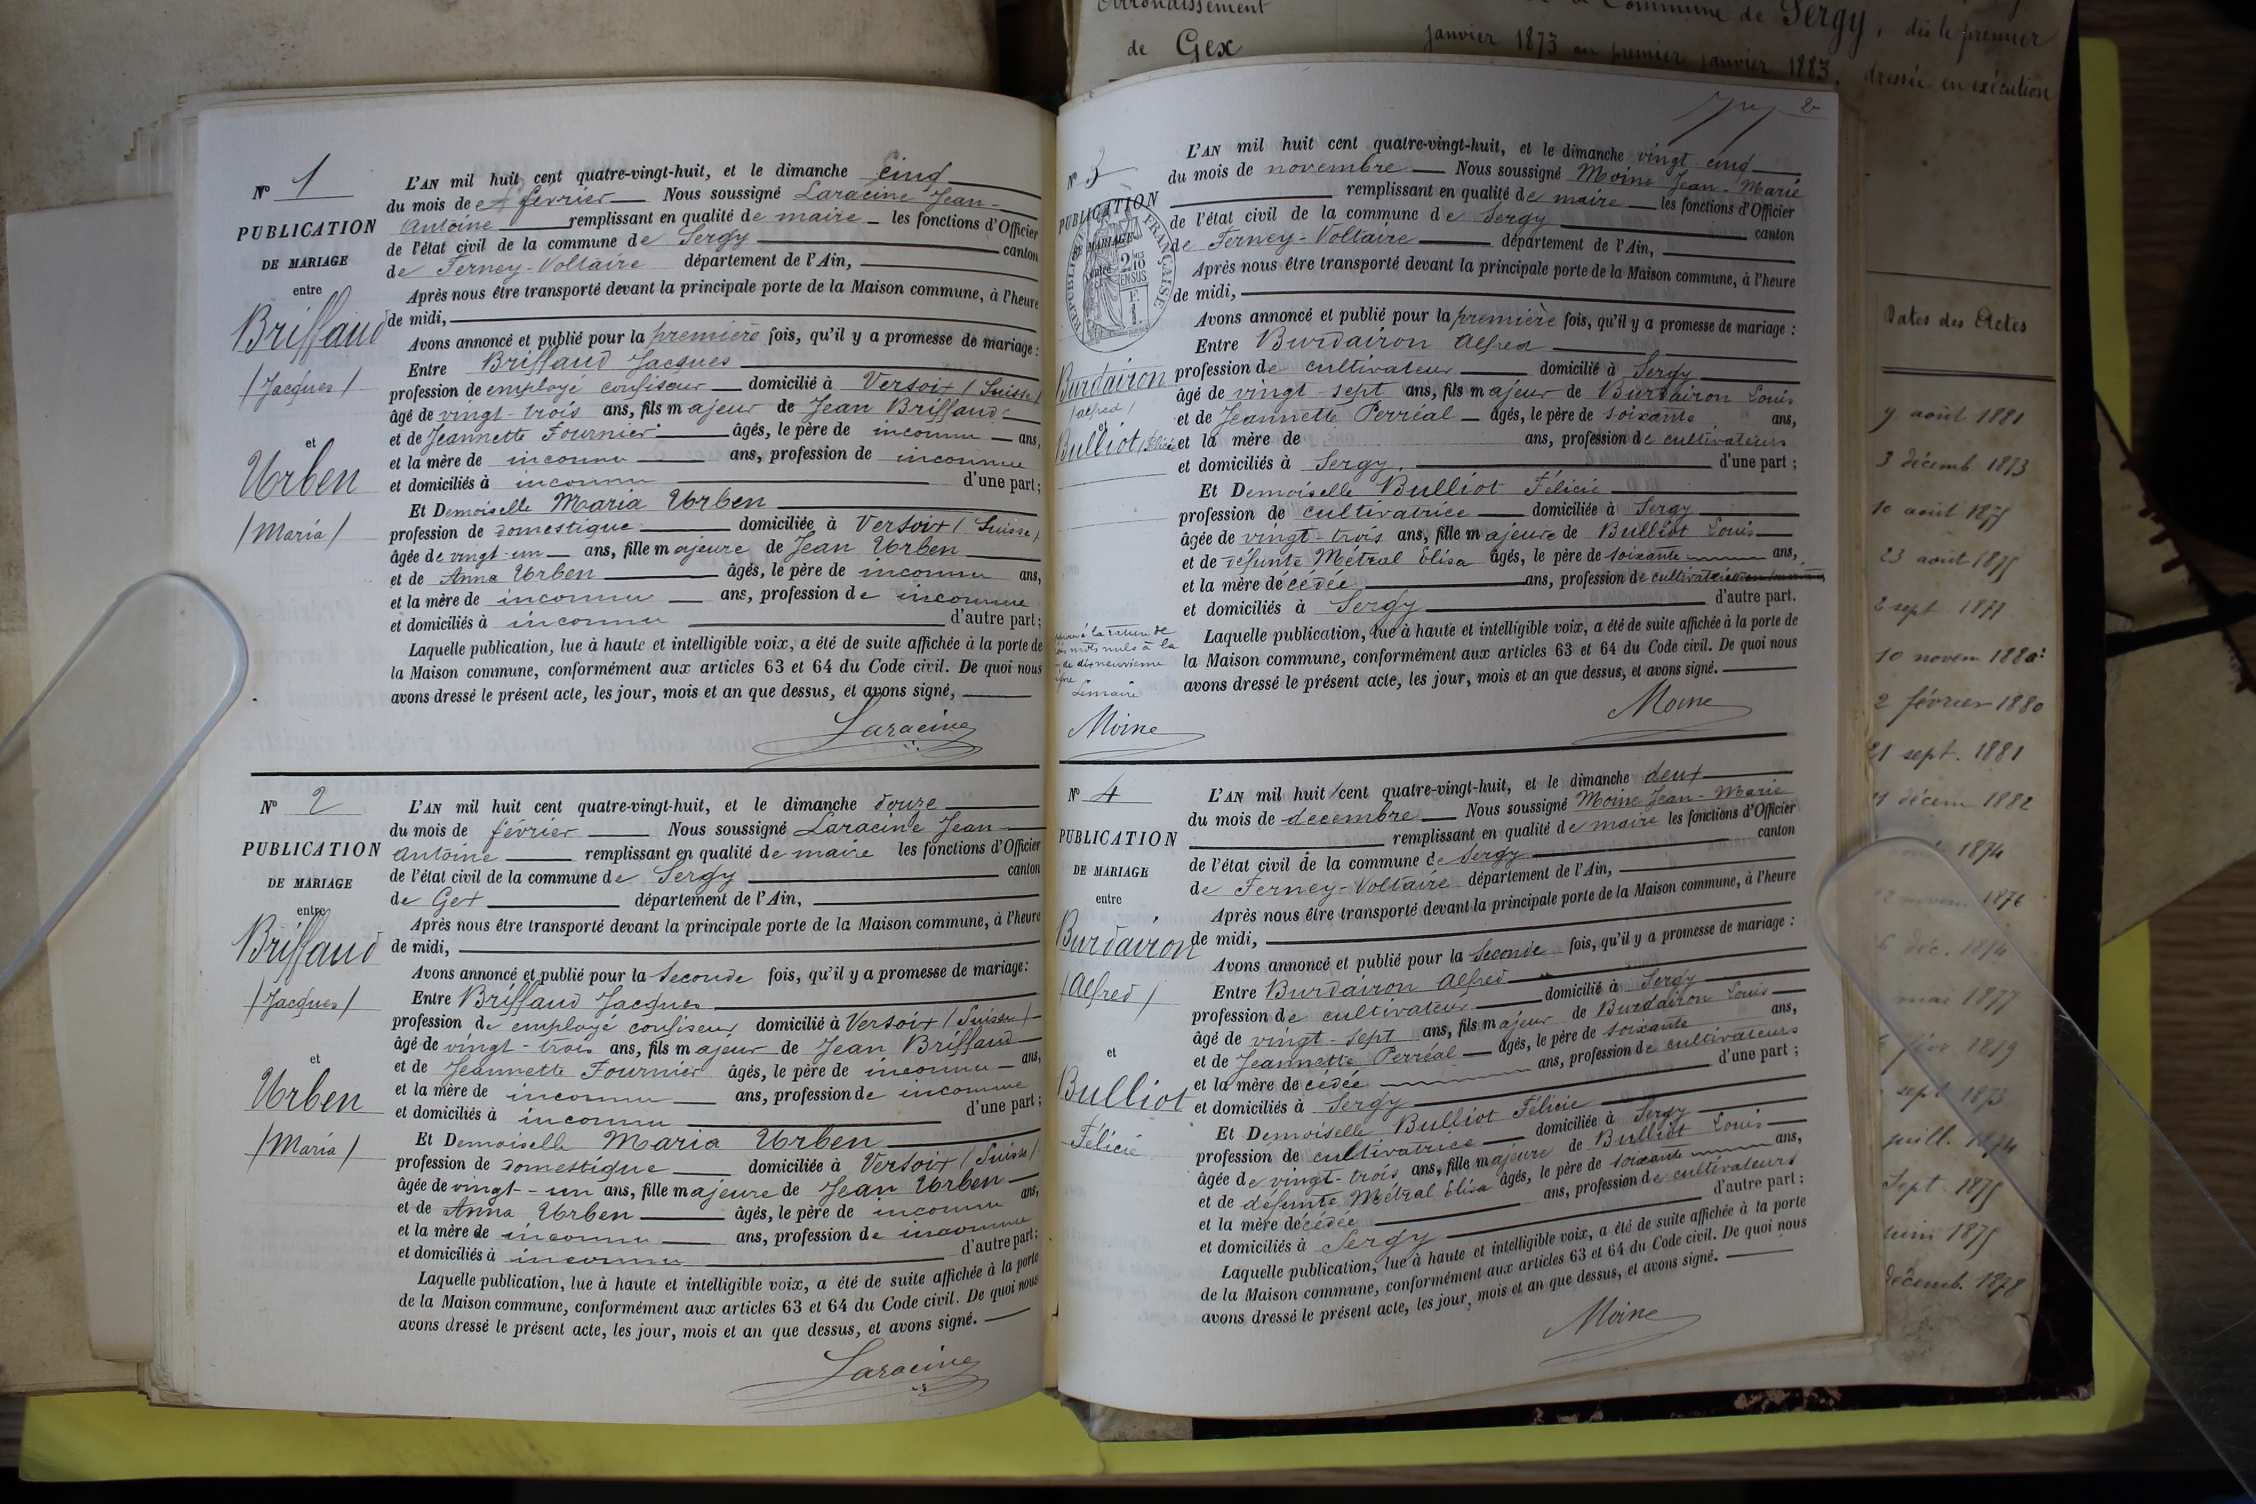 Nº 1
PUBLICATION
DE MARIAGE
entre
Briffaud
/Jacques/
et
Urben
/Maria/
L'AN mil huit cent quatre-vingt-huit, et le dimanche cinq
du mois de février Nous soussigné Laracine Jean-
Antoine remplissant en qualité de maire les fonctions d'Officier
de l'état civil de la commune de Sergy canton
de Ferney-Voltaire département de l'Ain,
Après nous être transporté devant la principale porte de la Maison commune, à l'heure
de midi,
Avons annoncé et publié pour la première fois, qu'il y a promesse de mariage :
Entre Briffaud Jacques
profession de employé confiseur domicilié à Versoix /Suisse/
âgé de vingt-trois ans, fils majeur de Jean Briffaud
et de Jeannette Fournier âgés, le père de inconnu ans,
et la mère de inconnu ans, profession de inconnue
et domiciliés à inconnu d'une part ;
Et Demoiselle Maria Urben
profession de domestique domiciliée à Versoix /Suisse/
âgée de vingt-un ans, fille majeure de Jean Urben
et de Anna Urben âgés, le père de inconnu ans,
et la mère de inconnu ans, profession de inconnue
et domiciliés à inconnu d'autre part ;
Laquelle publication, lue à haute et intelligible voix, a été de suite affichée à la porte de
la Maison commune, conformément aux articles 63 et 64 du Code civil. De quoi nous
avons dressé le présent acte, les jour, mois et an que dessus, et avons signé,
Laracine
Nº 2
PUBLICATION
DE MARIAGE
entre
Briffaud
/Jacques/
et
Urben
/Maria/
L'AN mil huit cent quatre-vingt-huit, et le dimanche douze
du mois de février Nous soussigné Laracine Jean-
Antoine remplissant en qualité de maire les fonctions d'Officier
de l'état civil de la commune de Sergy canton
de Gex département de l'Ain,
Après nous être transporté devant la principale porte de la Maison commune, à l'heure
de midi,
Avons annoncé et publié pour la seconde fois, qu'il y a promesse de mariage :
Entre Briffaud Jacques
profession de employé confiseur domicilié à Versoix /Suisse/
âgé de vingt-trois ans, fils majeur de Jean Briffaud
et de Jeannette Fournier âgés, le père de inconnu ans,
et la mère de inconnu ans, profession de inconnue
et domiciliés à inconnu d'une part ;
Et Demoiselle Maria Urben
profession de domestique domiciliée à Versoix /Suisse/
âgée de vingt-un ans, fille majeure de Jean Urben
et de Anna Urben âgés, le père de inconnu ans,
et la mère de inconnu ans, profession de inconnue
et domiciliés à inconnu d'autre part ;
Laquelle publication, lue à haute et intelligible voix, a été de suite affichée à la porte
de la Maison commune, conformément aux articles 63 et 64 du Code civil. De quoi nous
avons dressé le présent acte, les jour, mois et an que dessus, et avons signé.
Laracine
2
Nº 3
PUBLICATION
DE MARIAGE
entre
Burdairon
/alfred/
et
Bulliot /Félicie
L'AN mil huit cent quatre-vingt-huit, et le dimanche vingt-cinq
du mois de novembre Nous soussigné Moine Jean-Marie
remplissant en qualité de maire les fonctions d'Officier
de l'état civil de la commune de Sergy canton
de Ferney-Voltaire département de l'Ain,
Après nous être transporté devant la principale porte de la Maison commune, à l'heure
de midi,
Avons annoncé et publié pour la première fois, qu'il y a promesse de mariage :
Entre Burdairon Alfred
profession de cultivateur domicilié à Sergy
âgé de vingt-sept ans, fils majeur de Burdairon Louis
et de Jeannette Perréal âgés, le père de soixante ans,
et la mère de ans, profession de cultivateurs
et domiciliés à Sergy. d'une part ;
Et Demoiselle Bulliot Félicie
profession de cultivatrice domiciliée à Sergy
âgée de vingt-trois ans, fille majeure de Bulliot Louis
et de défunte Métral Elisa âgés, le père de soixante ans,
et la mère décédée ans, profession de
et domiciliés à Sergy d'autre part.
Laquelle publication, lue à haute et intelligible voix, a été de suite affichée à la porte de
la Maison commune, conformément aux articles 63 et 64 du Code civil. De quoi nous
avons dressé le présent acte, les jour, mois et an que dessus, et avons signé.
Moine
à la rature de
mots nuls à la
dixneuvième
Le maire
Moine
RÉPUBLIQUE FRANÇAISE
Nº 4
PUBLICATION
DE MARIAGE
entre
Burdairon
/Alfred/
et
Bulliot
Félicie
L'AN mil huit cent quatre-vingt-huit, et le dimanche deux
du mois de décembre Nous soussigné Moine Jean-Marie
remplissant en qualité de maire les fonctions d'Officier
de l'état civil de la commune de Sergy canton
de Ferney-Voltaire département de l'Ain,
Après nous être transporté devant la principale porte de la Maison commune, à l'heure
de midi,
Avons annoncé et publié pour la seconde fois, qu'il y a promesse de mariage :
Entre Burdairon Alfred
profession de cultivateur domicilié à Sergy
âgé de vingt-sept ans, fils majeur de Burdairon Louis
et de Jeannette Perréal âgés, le père de soixante ans,
et la mère décédée ans, profession de cultivateurs
et domiciliés à Sergy d'une part ;
Et Demoiselle Bulliot Félicie
profession de cultivatrice domiciliée à Sergy
âgée de vingt-trois ans, fille majeure de Bulliot Louis
et de défunte Métral Elisa âgés, le père de soixante ans,
et la mère décédée ans, profession de cultivateurs
et domiciliés à Sergy d'autre part ;
Laquelle publication, lue à haute et intelligible voix, a été de suite affichée à la porte
de la Maison commune, conformément aux articles 63 et 64 du Code civil. De quoi nous
avons dressé le présent acte, les jour, mois et an que dessus, et avons signé.
Moine
Arrondissement
de Gex
Commune de Sergy, dès le premier
janvier 1873 au premier janvier 1883, dressée en exécution
Dates des Actes
9 août 1881
3 décemb. 1873
10 août 1875
23 août 1875
2 sept. 1877
10 novem 1880
2 février 1880
21 sept. 1881
décem 1882
1874
novem 1876
déc. 1874
mai 1877
févr 1879
sept 1873
juill. 1874
Sept. 1875
juin 1875
décemb. 1878